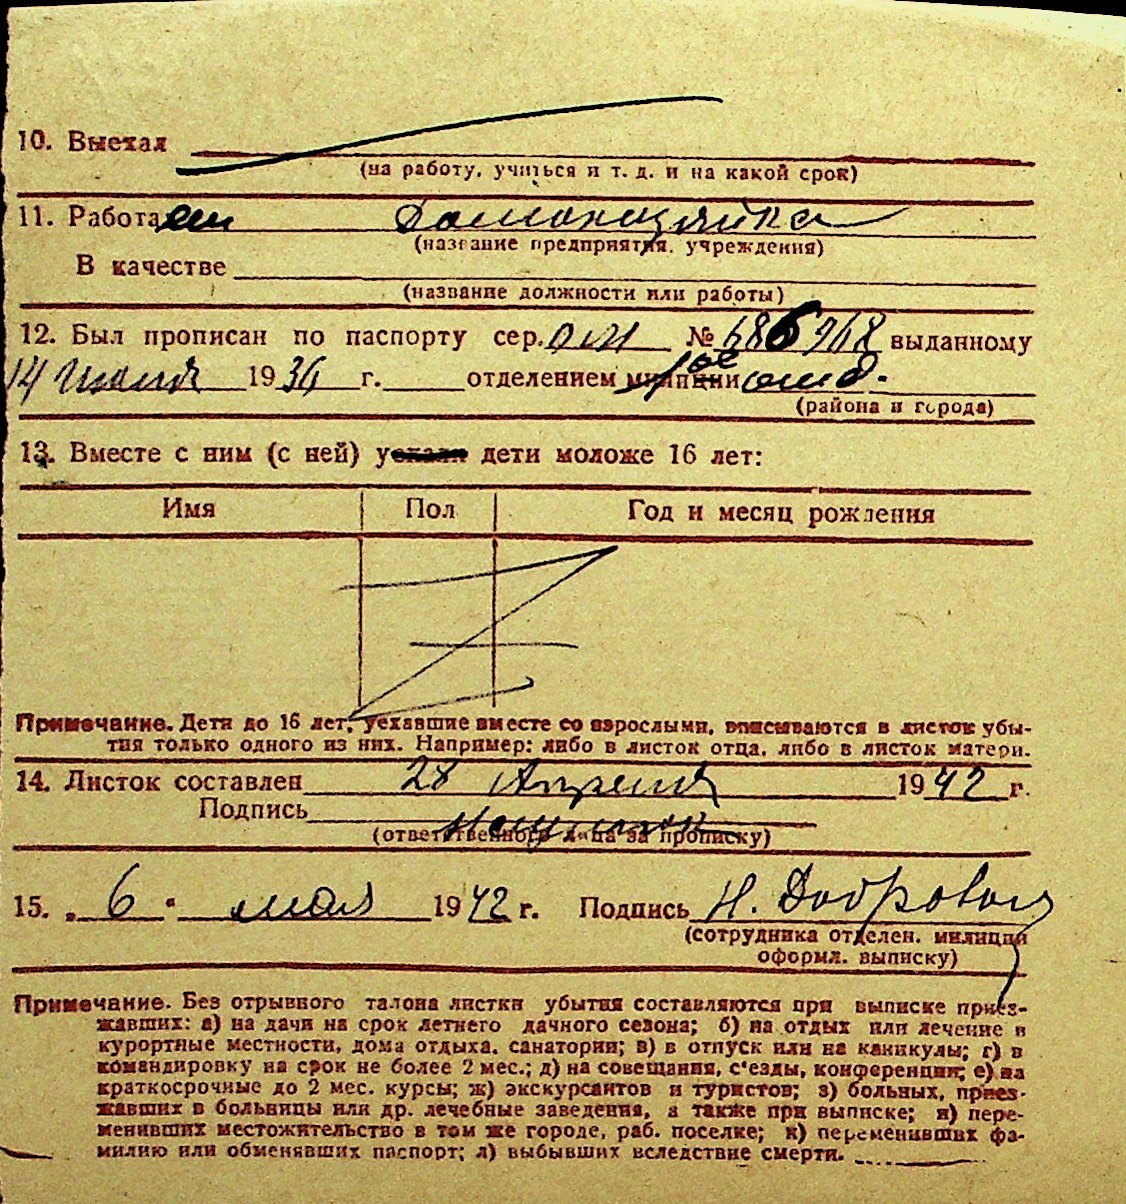 10. Выехал
(на работу, учиться и т. д. и на какой срок)
11. Работает Домохозяйка
(название предприятия, учреждения)
В качестве
(название должности или работы)
12. Был прописан по паспорту сер. № 686968 выданному
14 1936 г. отделением милиции
(района и города)
13. Вместе с ним (с ней) уехали дети моложе 16 лет:
Имя Пол Год и месяц рождения
Примечание. Дети до 16 лет, уехавшие вместе со взрослыми, вписываются в листок убы-
тия только одного из них. Например: либо в листок отца, либо в листок матери.
14. Листок составлен 28 Апреля 1942 г.
Подпись
(ответственного лица за прописку)
15. 6 мая 1942 г. Подпись Н.
(сотрудника отделен. милиции
оформл. выписку)
Примечание. Без отрывного талона листки убытия составляются при выписке приез-
жавших: а) на дачи на срок летнего дачного сезона; б) на отдых или лечение в
курортные местности, дома отдыха, санатории; в) в отпуск или на каникулы; г) в
командировку на срок не более 2 мес.; д) на совещания, с'езды, конференции; е) на
краткосрочные до 2 мес. курсы; ж) экскурсантов и туристов; з) больных, приез-
жавших в больницы или др. лечебные заведения, а также при выписке; и) пере-
менивших местожительство в том же городе, раб. поселке; к) переменивших фа-
милию или обменявших паспорт; л) выбывших вследствие смерти.